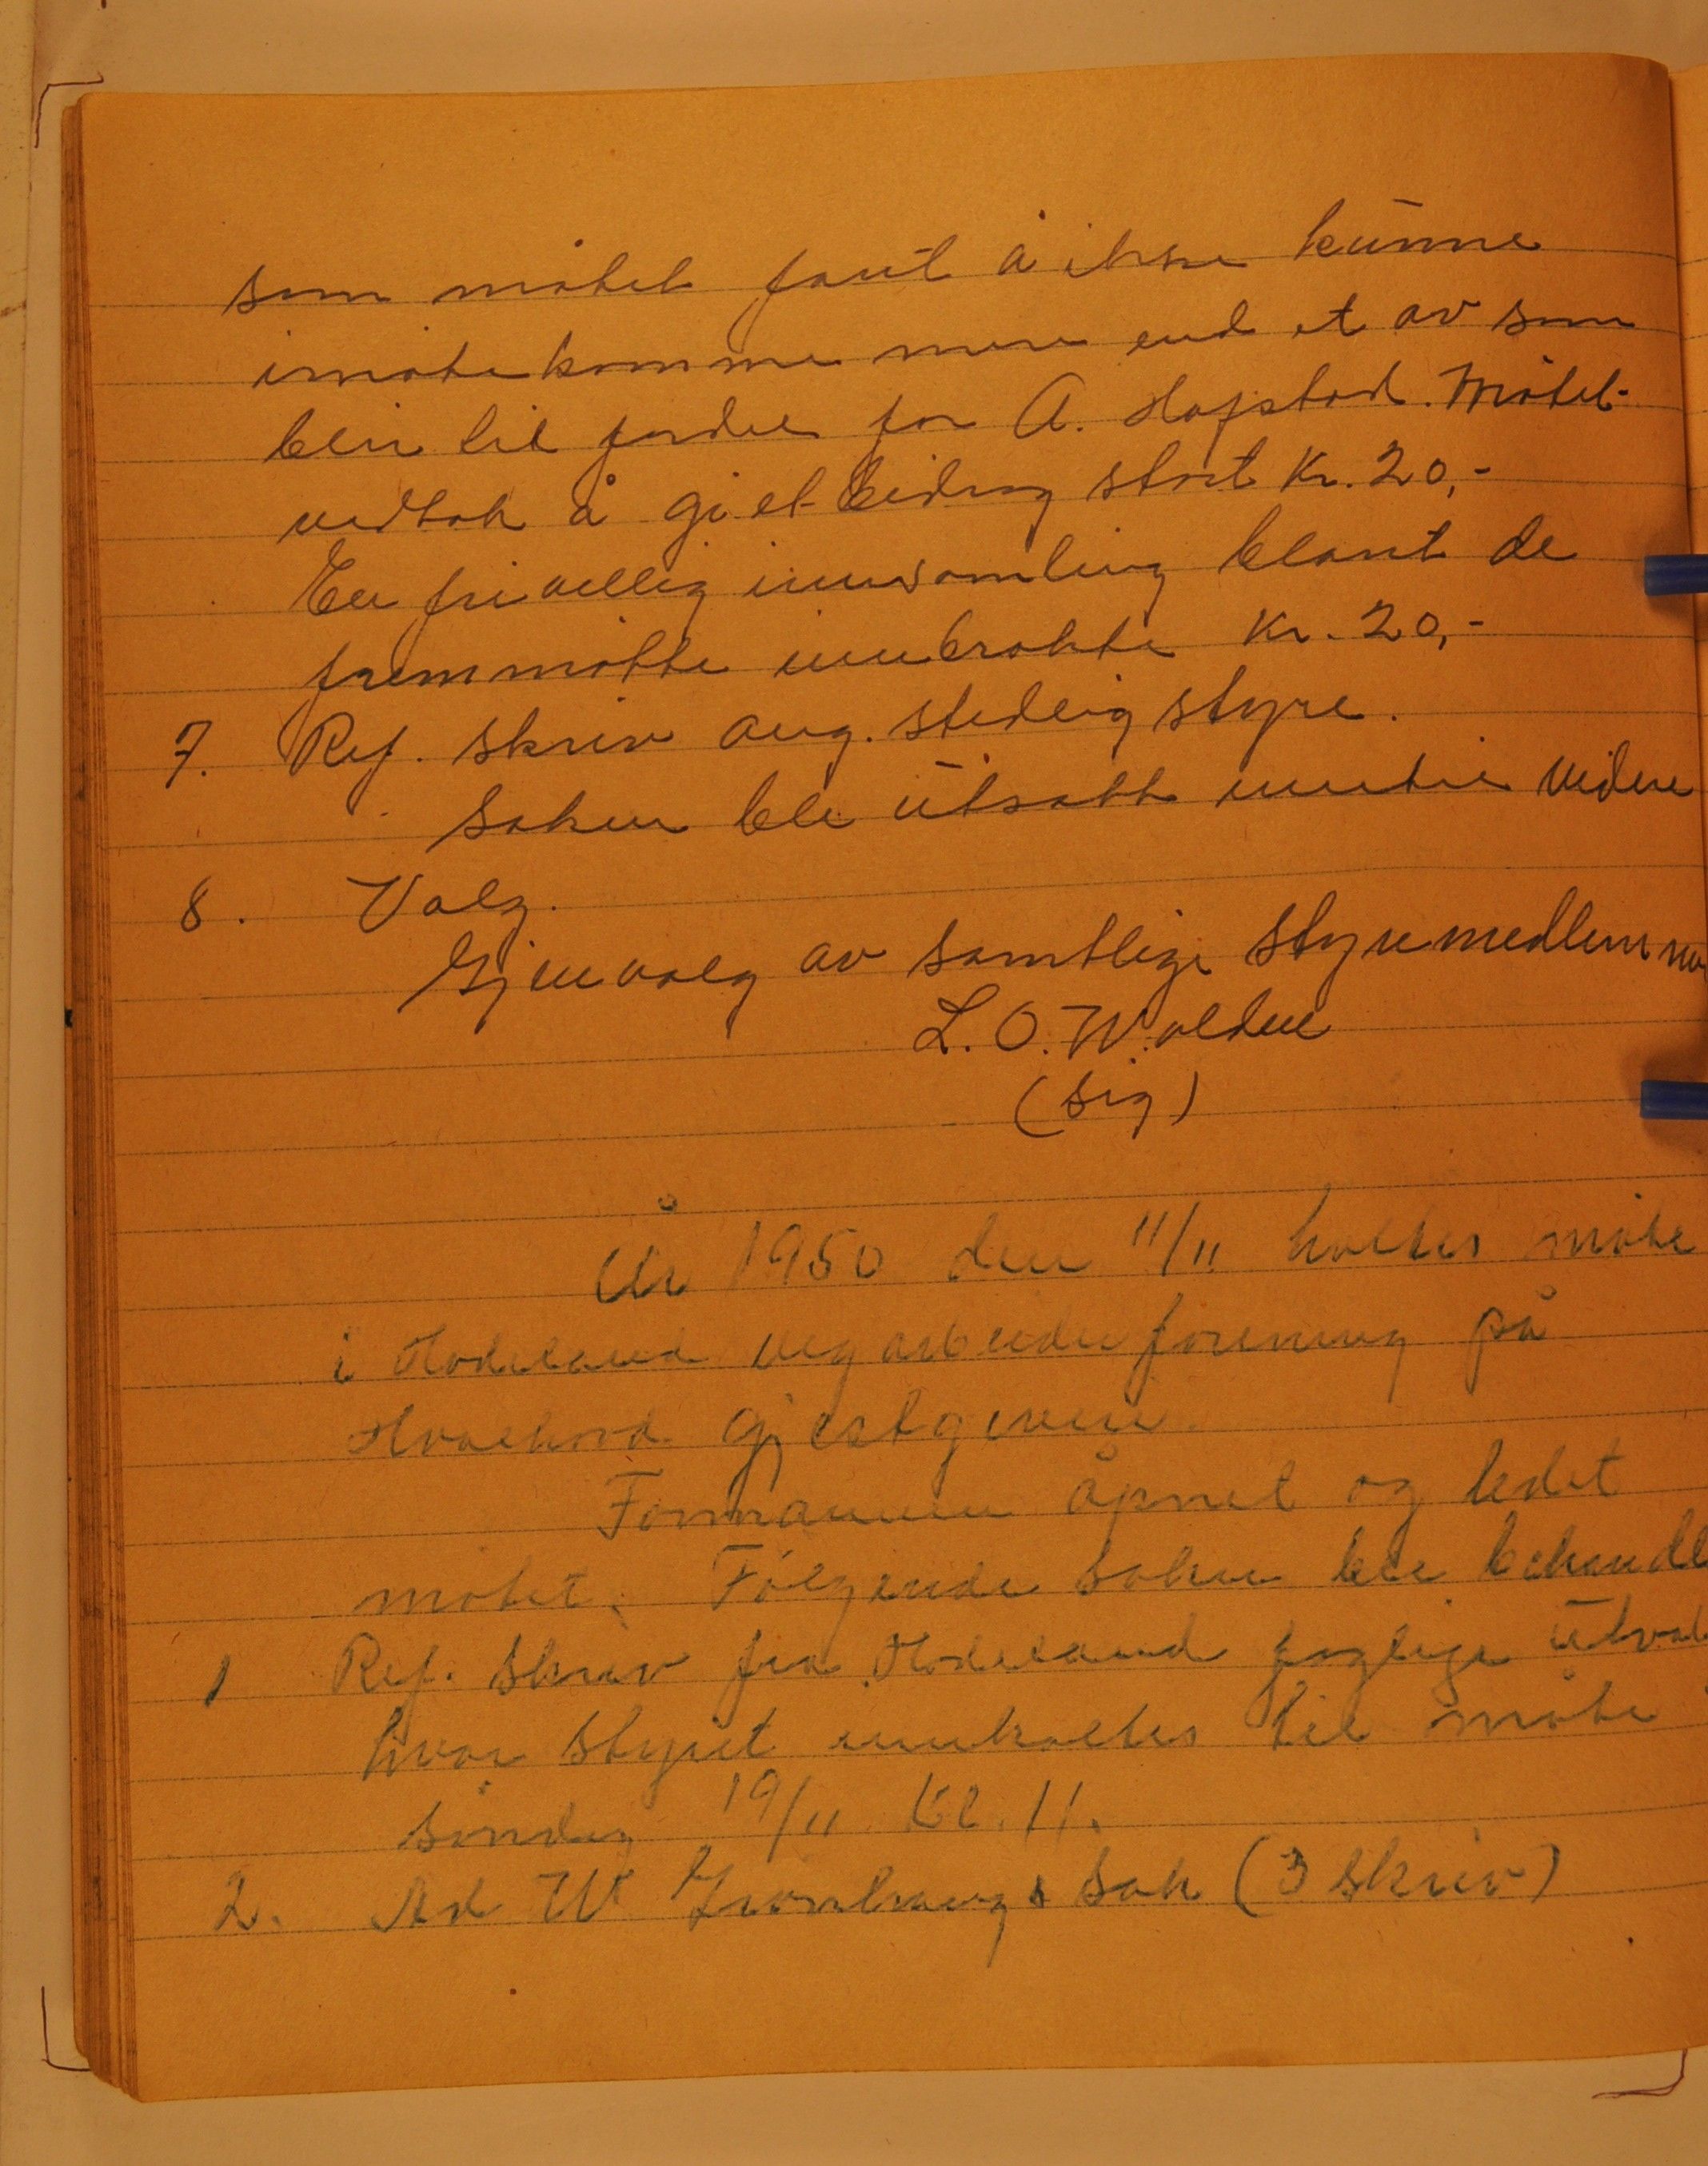 som møtet fant å ikke kunne
imøtekomme mere end et av som
blir til fordel for A. Hopstad. Møtet
vedtok å gi et bidrag stort Kr. 20,-
En frivellig innsamling blant de
fremmøtte innbrakte Kr. 20,-
7. Ref. skriv ang. stedlig styre.
Saken ble utsatt inntil videre
8. Valg.
Gjenvalg av samtlige styremedlemmer
L. O. Wolden
(sig)
År 1950 den 11/11 holtes møte
i Hordaland vegarbeiderforening på
gjestgiveri.
Formannen åpnet og ledet
møtet. Følgende saker ble behandlet
1 Ref. skriv fra Hordaland faglige utvalg
hvor styret innkaltes til møte
søndag 19/11 kl. 11.
2. Ad W sak (3 skriv)